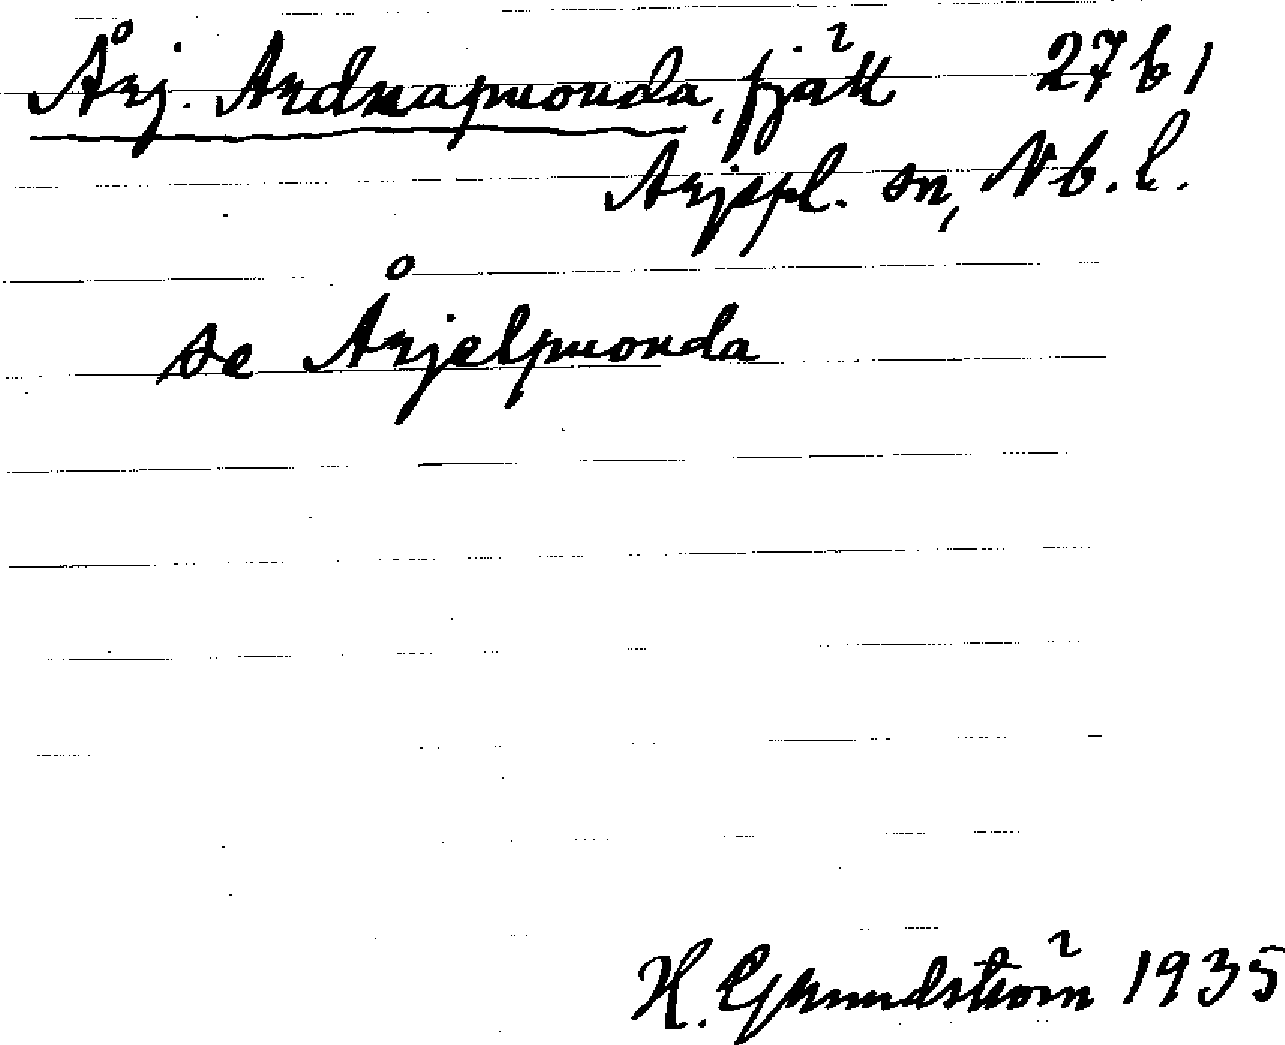 Årj. Ardnapuouda, fjäll 27b1
Arjepl. sn, Nb. l.
se Årjelpuouda
H. Grundström 1935